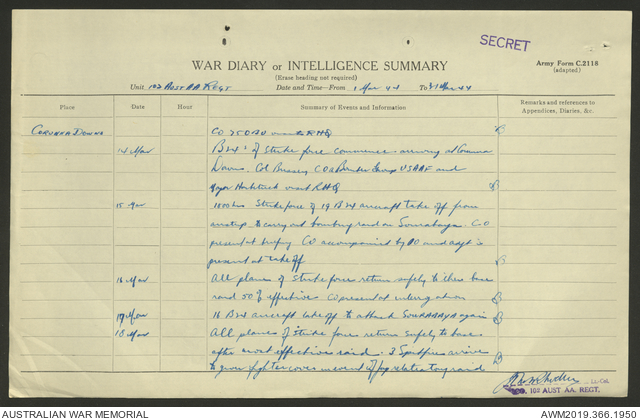 SECRET
WAR DIARY or INTELLIGENCE SUMMARY
Army Form C.2118
(adapted)
(Erase heading not required)
Unit 102 AUST AA REGT Date and Time—From 1 Mar 44 To 31 Mar 44
Place Date Hour Summary of Events and Information Remarks and references to
Appendices, Diaries, &c.
CORUNNA DOWNS CO RHQ
14 Mar B24's of Strike force commence arriving at Corunna
Downs. Col CO Bomber Group USAAF and
Major visit RHQ
15 Mar 1800 hrs Strike force of 19 B24 aircraft take off from
airstrip to carry out bombing raid on Sourabaya. CO
present at briefing CO accompanied by and adjt is
present at take off
16 Mar All planes of Strike force return safely to their base
raid 50% effective CO present at interrogation
17 Mar 16 B24 aircraft take off to attack SOURABAYA again
18 Mar All planes of strike force return safely to base
after most effective raid. 3 Spitfires arrive
to give fighter cover in event of Jap retaliatory raid
Lt-Col.
CO. 102 AUST AA. REGT.
AUSTRALIAN WAR MEMORIAL
AWM2019.366.1950